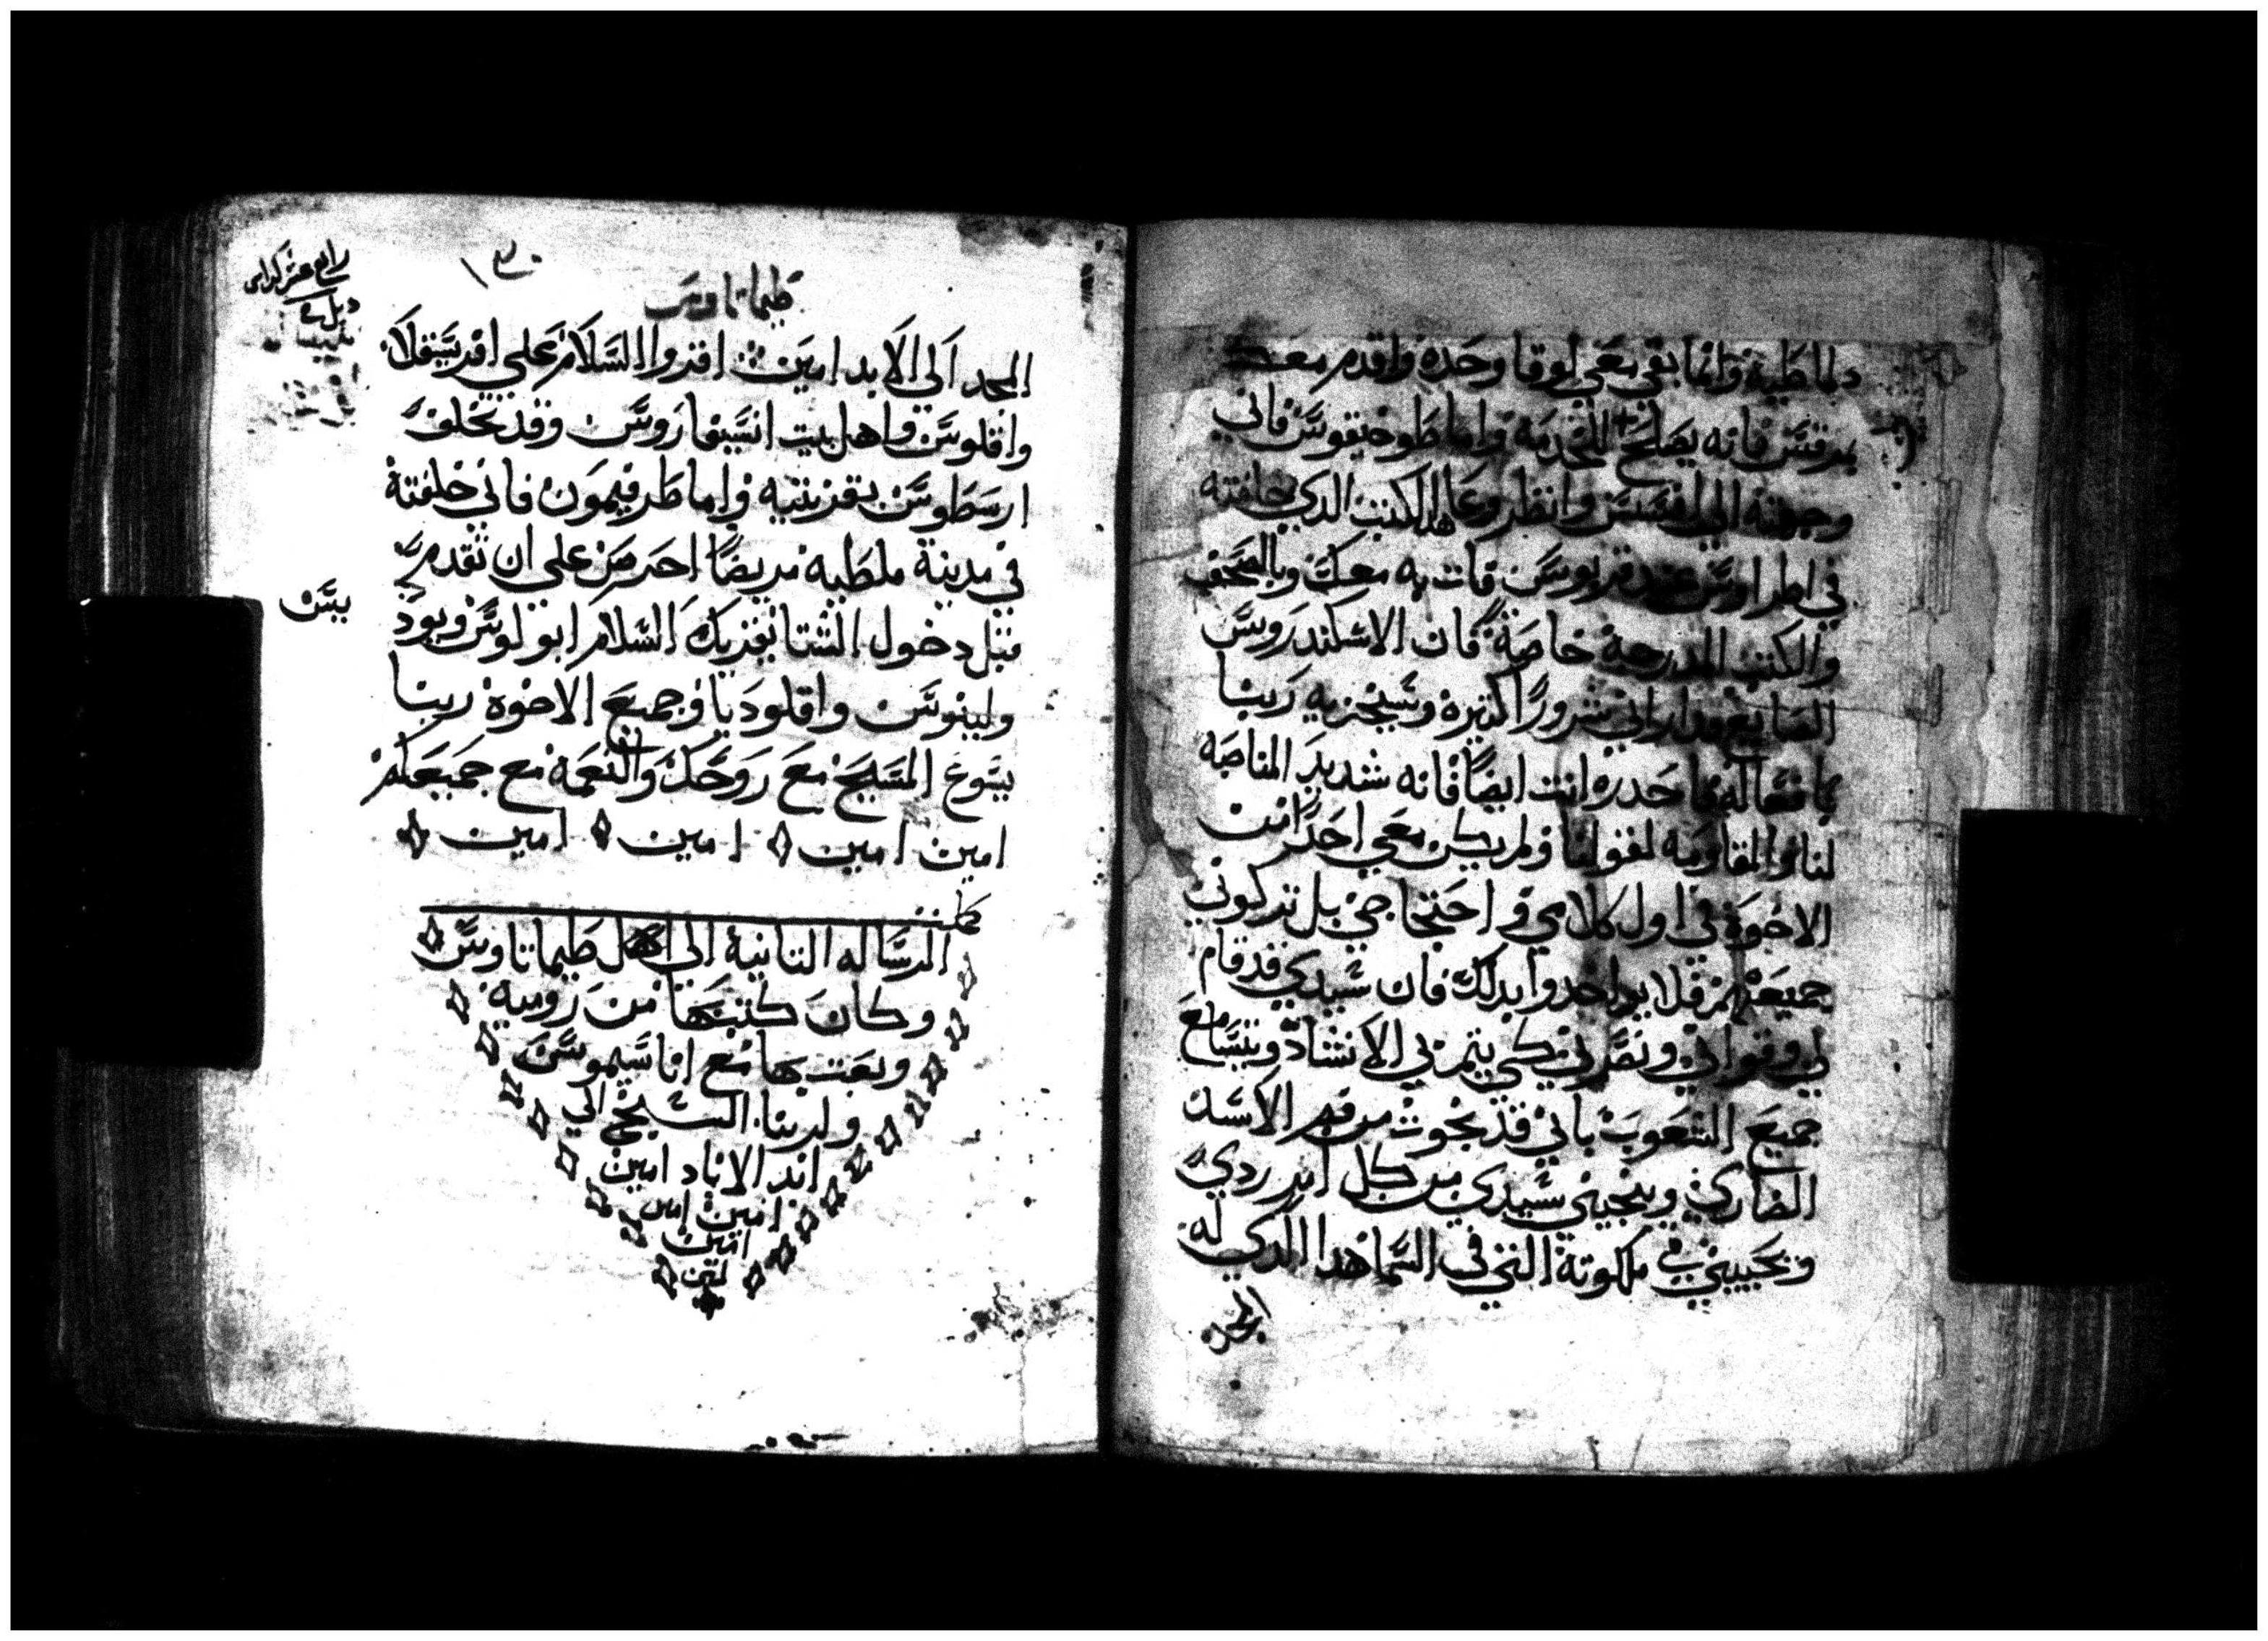 دلماطية وانما بقي معي لوقا وحده واقدم معك
بمرقس فانه يصلح للخدمة واما طوخيقوس فاني
وجهته الي افسس وانظر وعا الكتب الدي خلفته
في اطراوس عند قربوس فات به معك وبالصحف
والكتب المدرجة خاصة فان الاسكندروس
الصايغ قد اراني شرورا كتيره وسيجزيه ربنا
بافعاله فاحدره انت ايضا فانه شديد المناصبه
لنا والمقاومه لقولنا ولم يكن معي احدا من
الاخوة في اول كلامي و احتجاجي بل تركوني
جميعهم فلا يواخدوا بدلك فان سيدي قد قام
لي وقواني ونصرني كي يتم بي الانشاد ويتسامع
جميع الشعوب باني قد نجوت من فم الاسد
الضاري وينجيني سيدي من كل امر ردي
ويحييني في ملكوته التي في السما هدا الدي له
المجد
١٣٠
طيماتاوس
رابع عشر كراس
المجد الي الابد امين اقروا السلام علي افرسقلا
واقلوس واهل بيت انسيفاروس وقد تخلف
ارسطوس بقرنتيه واما طرفيمون فاني خلفته
في مدينة ملطيه مريضا احرص علي ان تقدم
قبل دخول الشتا يقريك السلام ابولوس وبود
بيس
ولينوس واقلوديا وجميع الاخوة ربنا
يسوع المسيح مع روحك والنعمه مع جميعكم
امين امين امين امين
كملت
الرساله التانية الي اهل طيماتاوس
وكان كتبها من رومية
وبعت بها مع اناسيموس
ولربنا التسبيح الي
ابد الاباد امين
امين امين
امين
امين